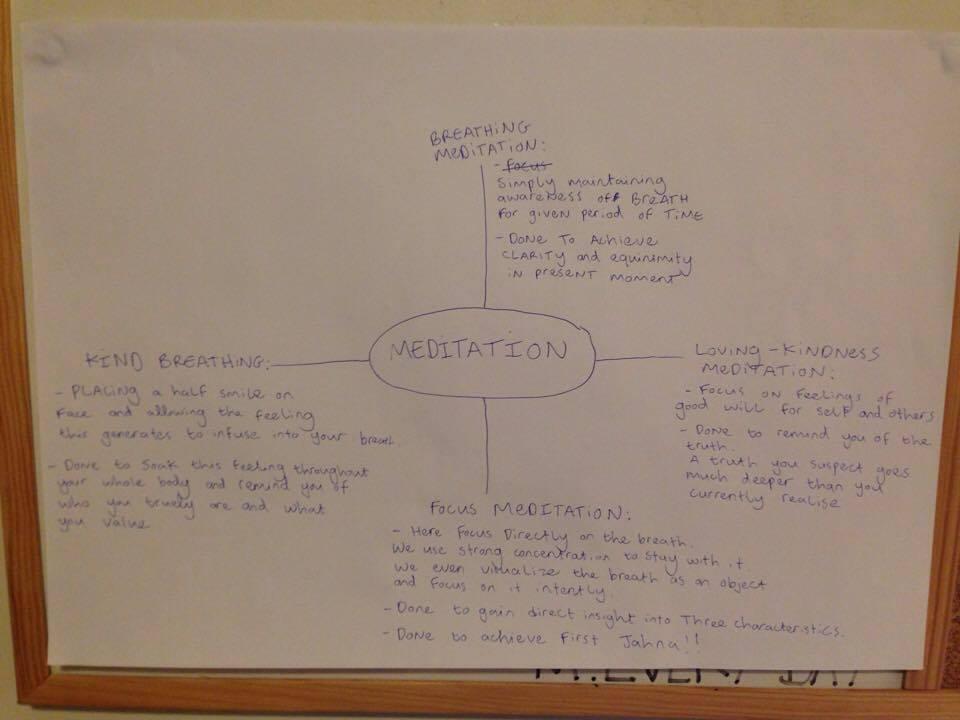 BREATHING
MEDITATION:
- Focus
Simply maintaining
awareness off BREATH
for given period of TIME
- DONE TO Achieve
CLARITY and equinimity
in present moment
MEDITATION
KIND BREATHING:
- PLACING a half smile on
Face and allowing the feeling
this generates to infuse into your breath.
- Done to Soak this feeling throughout
your whole body and remind you of
who you truely are and what
you value
LOVING-KINDNESS
MEDITATION:
- Focus on feelings of
good will for self and others
- Done to remind you of the
truth.
A truth you suspect goes
much deeper than you
currently realise
FOCUS MEDITATION:
- Here focus Directly on the breath.
We use strong concentration to stay with it
We even visualize the breath as an object
and focus on it intently.
- Done to gain direct insight into Three characteristics.
- Done to achieve First Jahna!!
M:EVERY DAY